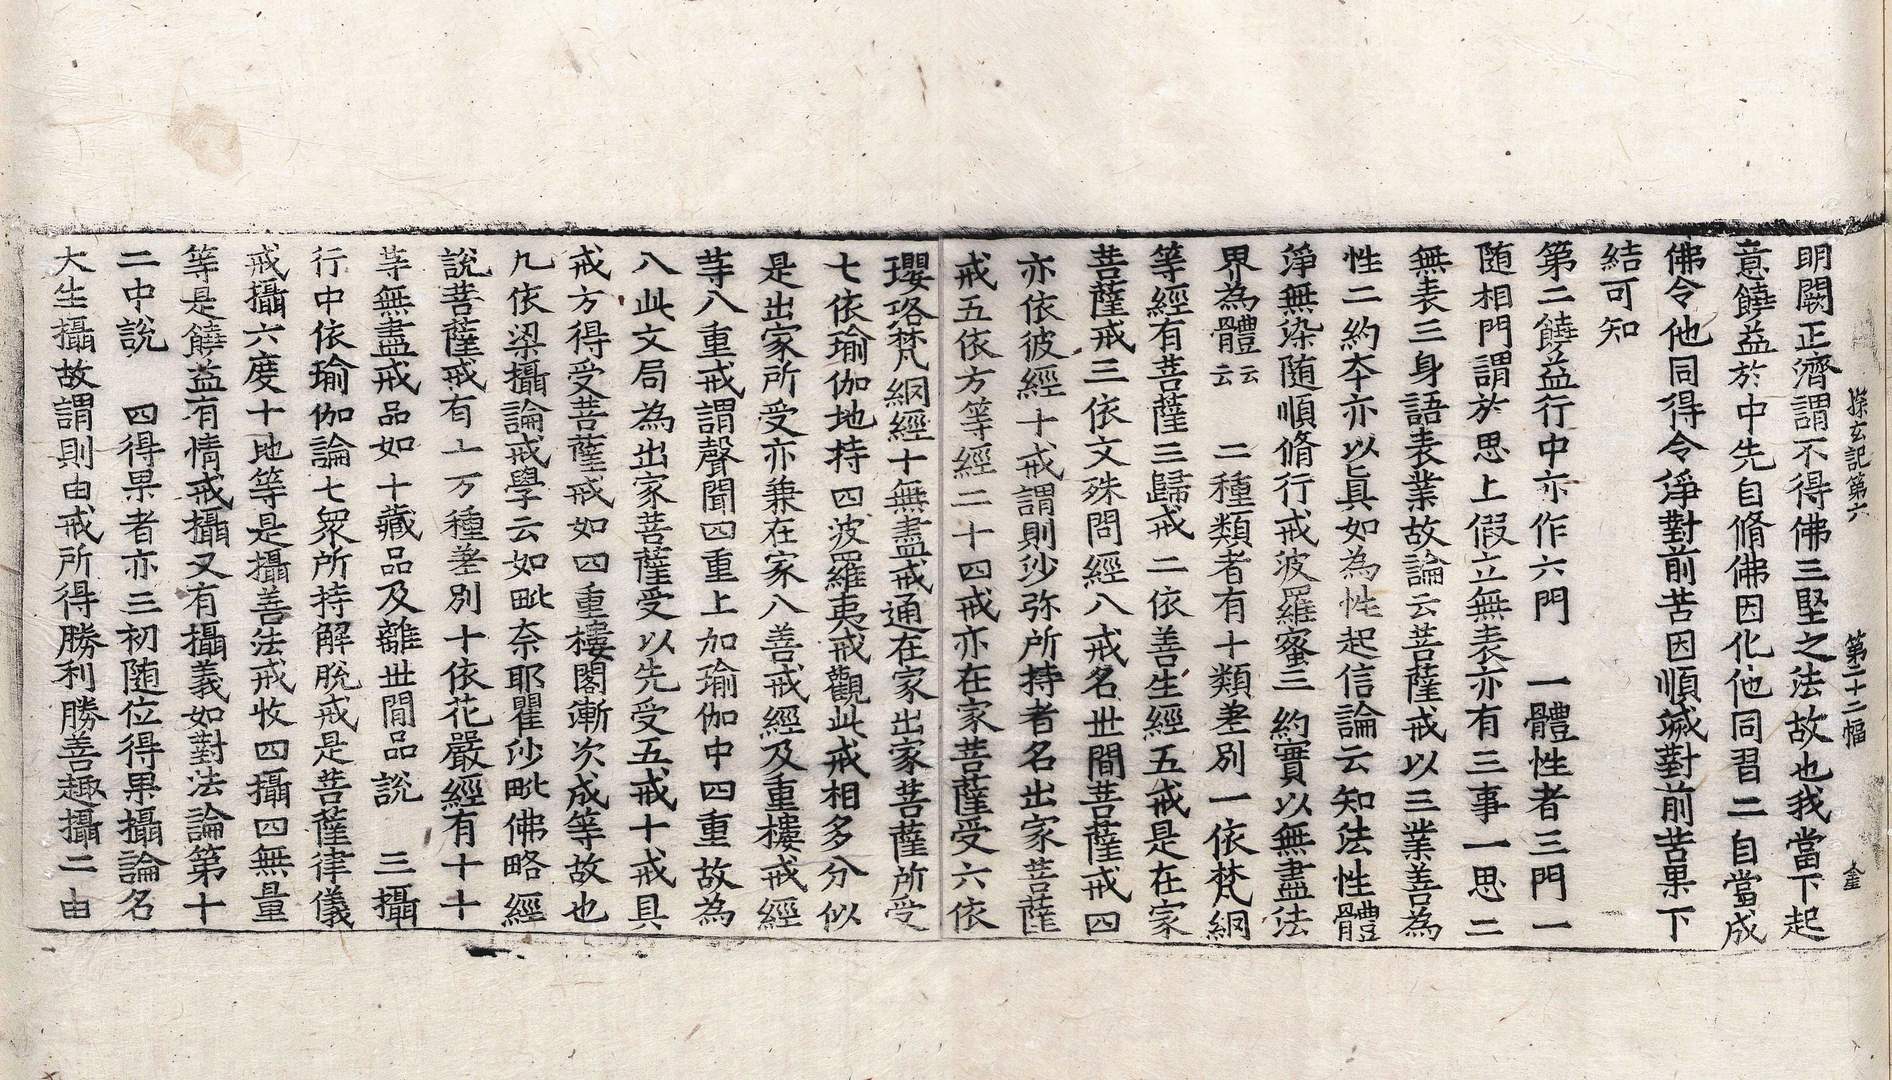 探玄記第六 第二十二幅 盒
明闕正濟謂不得佛三堅之法故也我當下起
意饒益於中先自脩佛因化他同習二自當成
佛令他同得令淨對前苦因順滅對前苦果下
結可知
第二饒益行中亦作六門 一體性者三門一
随相門謂於思上假立無表亦有三事一思二
無表三身語表業故論云菩薩戒以三業善為
性二約本亦以真如為性起信論云知法性體
淨無染随順脩行戒波羅蜜三約實以無盡法
界為體云云 二種類者有十類差別一依梵網
等經有菩薩三歸戒二依善生經五戒是在家
菩薩戒三依文殊問經八戒名世間菩薩戒四
亦依彼經十戒謂則沙弥所持者名出家菩薩
戒五依方等經二十四戒亦在家菩薩受六依
瓔珞梵網經十無盡戒通在家出家菩薩所受
七依瑜伽地持四波羅夷戒觀此戒相多分似
是出家所受亦兼在家八善戒經及重樓戒經
䓁八重戒謂聲聞四重上加瑜伽中四重故為
八此文局為出家菩薩受以先受五戒十戒具
戒方得受菩薩戒如四重樓閣漸次成等故也
九依梁攝論戒學云如毗奈耶瞿沙毗佛略經
說菩薩戒有十万種差別十依花嚴經有十十
䓁無盡戒品如十藏品及離世間品說 三攝
行中依瑜伽論七眾所持解脫戒是菩薩律儀
戒攝六度十地等是攝善法戒收四攝四無量
等是饒益有情戒攝又有攝義如對法論第十
二中說 四得果者亦三初随位得果攝論名
大生攝故謂則由戒所得勝利勝善趣攝二由